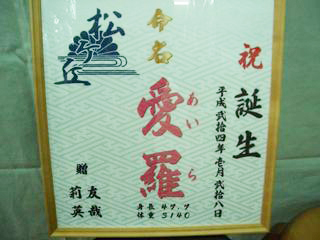 祝
誕生
平成弐拾四年壱月弐拾八日
命名
愛羅
あいら
身長 47.7
体重 3140
松ヶ丘
贈
友哉
莉英